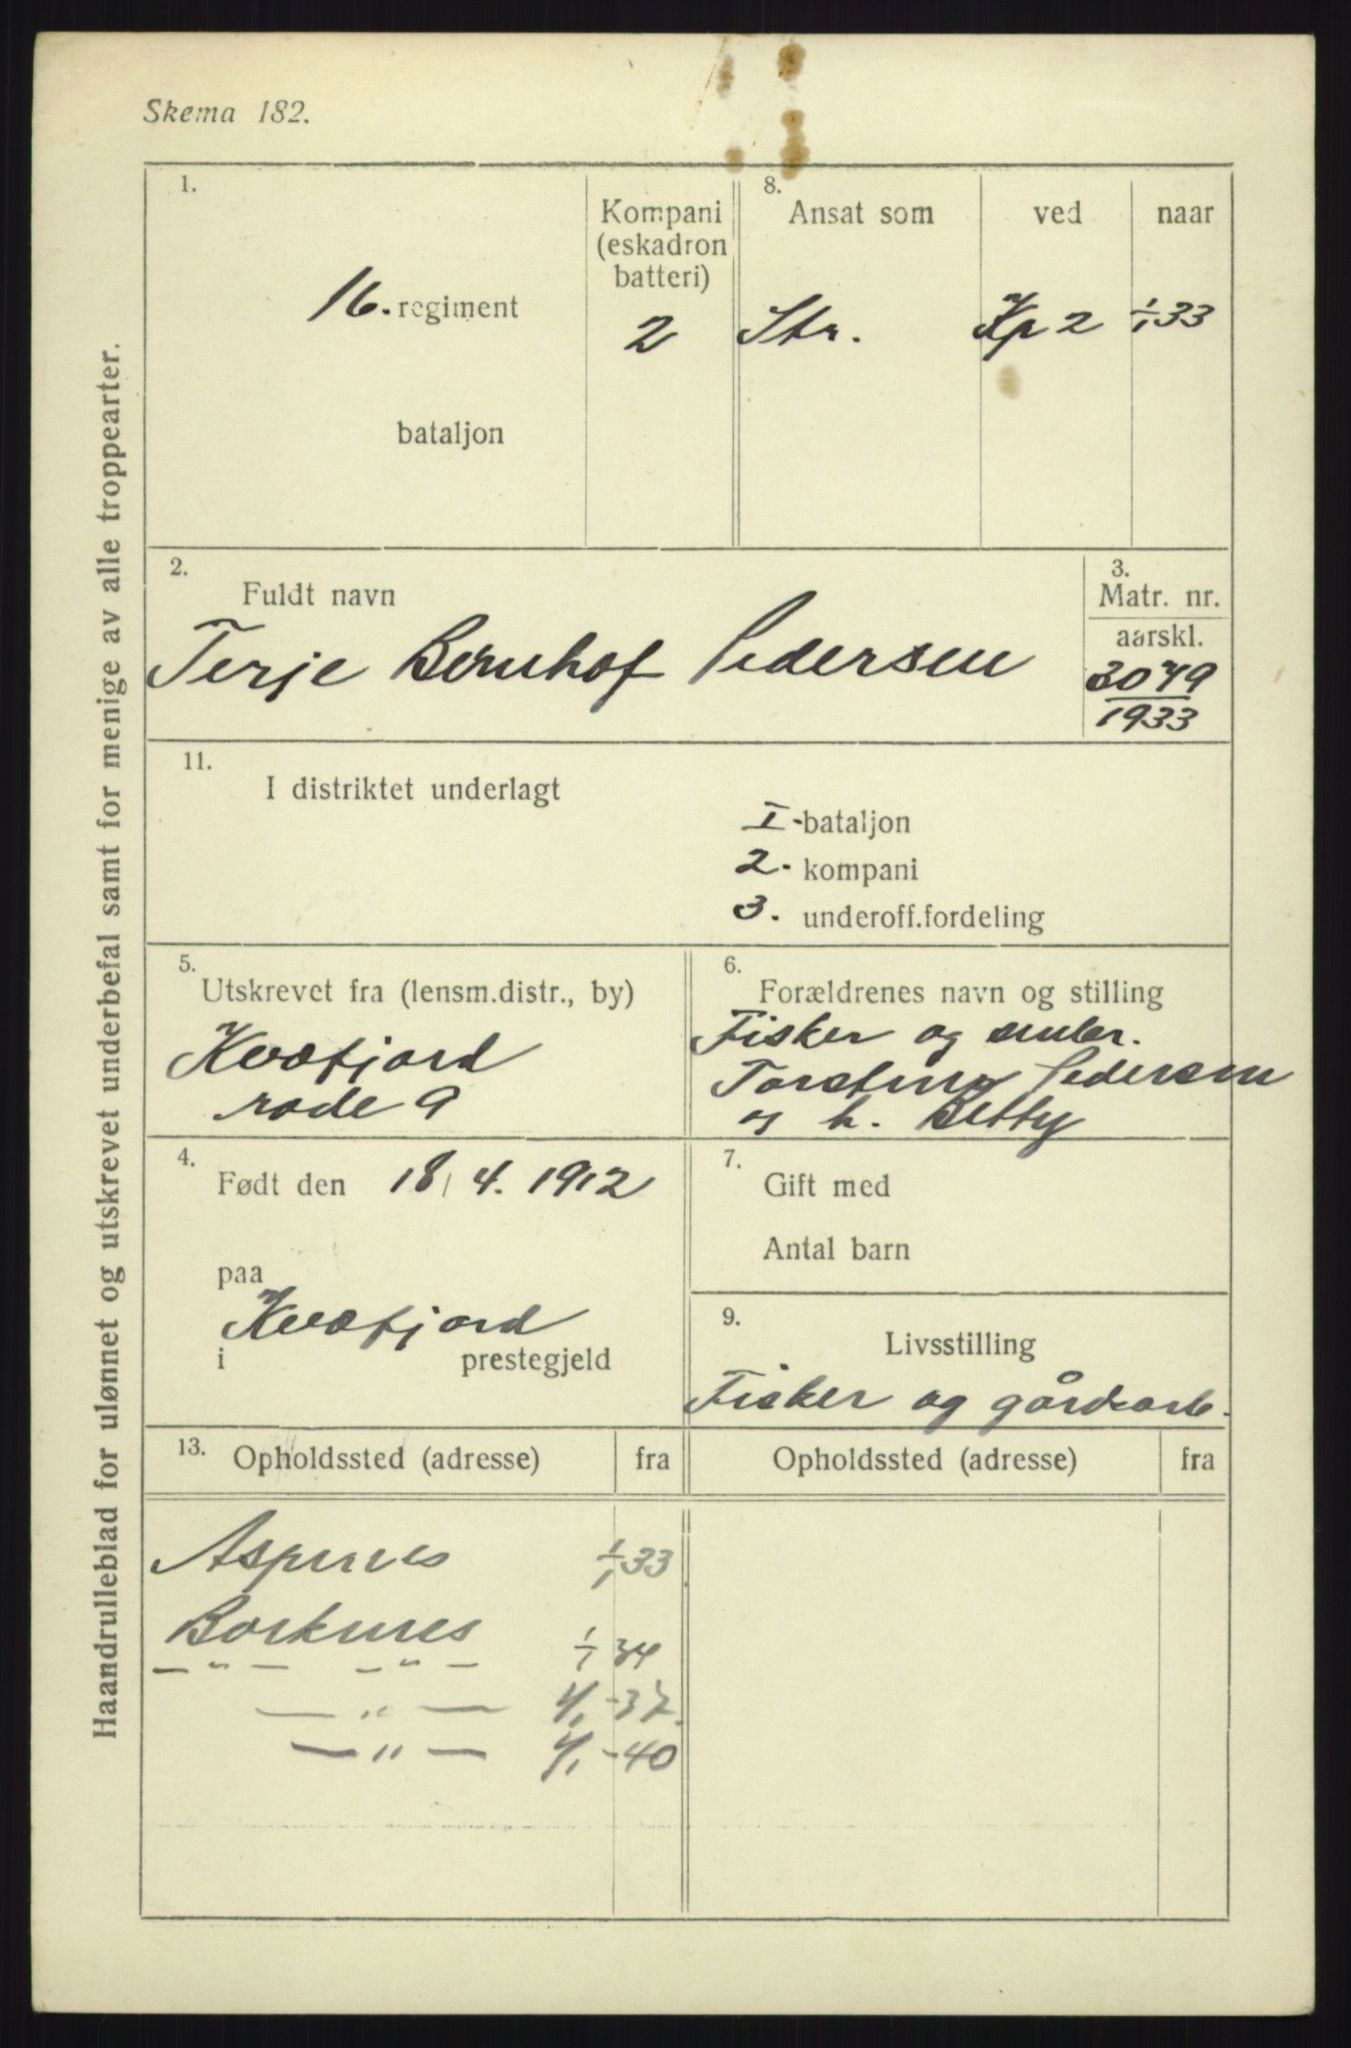 Skema 182.
Haandrulleblad for ulønnet og utskrevet underbefal samt for menige av alle troppearter.
1.
16. regiment
bataljon
Kompani
(eskadron
batteri)
2
8.
Ansat som ved naar
Str. Kp 2 1/1 33
2.
Fuldt navn
Terje Bernhof Pedersen
3.
Matr. nr.
aarskl.
3049
1933
11.
I distriktet underlagt
I-bataljon
2. kompani
3. underoff.fordeling
5.
Utskrevet fra (lensm.distr., by)
Kvæfjord
rode 9
6.
Forældrenes navn og stilling
Fisker og småbr.
Pedersen
og h. Betty
4.
Født den 18/4. 1912
paa
Kvæfjord
i prestegjeld
7.
Gift med
Antal barn
9.
Livsstilling
Fisker og gårdsarb.
13. Opholdssted (adresse) fra
Opholdssted (adresse) fra
Aspenes 1/1 33
Borkenes
— " — — " — 1/1 34
— " — 1/1-37.
— " — 1/1-40